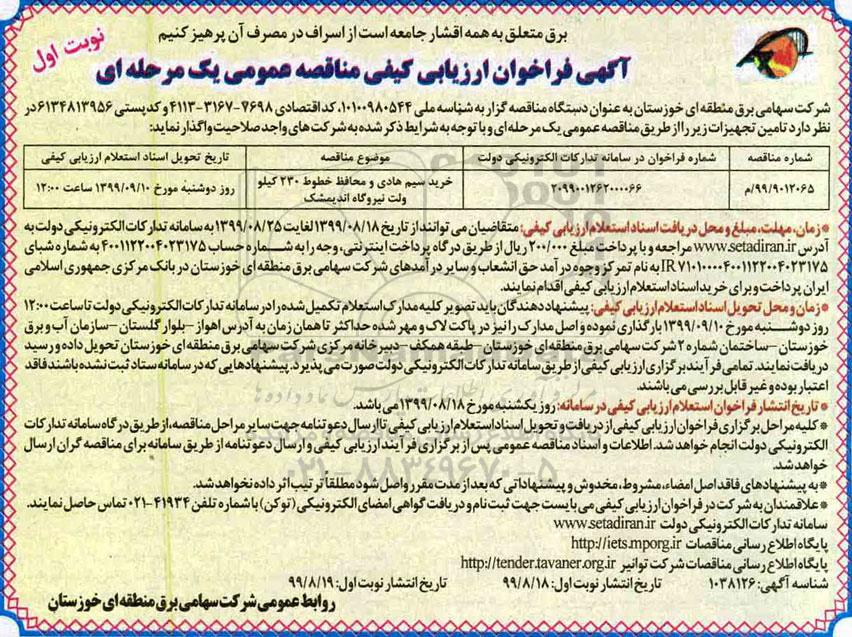 برق متعلق به همه اقشار جامعه است از اسراف در مصرف آن پرهیز کنیم
نوبت اول
آگهی فراخوان ارزیابی کیفی مناقصه عمومی یک مرحله ای
شرکت سهامی برق منطقه ای خوزستان به عنوان دستگاه مناقصه گزار به شناسه ملی ۱۰۱۰۰۹۸۰۵۴۴، کد اقتصادی ۷۶۹۸-۳۱۶۷-۴۱۱۳ و کدپستی ۶۱۳۴۸۱۳۹۵۶ در
نظر دارد تامین تجهیزات زیر را از طریق مناقصه عمومی یک مرحله ای و با توجه به شرایط ذکر شده به شرکت های واجد صلاحیت واگذار نماید:
شماره مناقصه شماره فراخوان در سامانه تدارکات الکترونیکی دولت موضوع مناقصه تاریخ تحویل اسناد استعلام ارزیابی کیفی
۹۹/۹۰۱۲۰۶۵/م ۲۰۹۹۰۰۱۲۶۲۰۰۰۰۶۶ خرید سیم هادی و محافظ خطوط ۲۳۰ کیلو روز دوشنبه مورخ ۱۳۹۹/۰۹/۱۰ ساعت ۱۲:۰۰
ولت نیروگاه اندیمشک
*زمان، مهلت، مبلغ و محل دریافت اسناد استعلام ارزیابی کیفی: متقاضیان می توانند از تاریخ ۱۳۹۹/۰۸/۱۸ لغایت ۱۳۹۹/۰۸/۲۵ به سامانه تدارکات الکترونیکی دولت به
آدرس www.setadiran.ir مراجعه و با پرداخت مبلغ ۲۰۰/۰۰۰ ریال از طریق درگاه پرداخت اینترنتی، وجه را به شماره حساب ۴۰۰۱۱۲۲۰۰۴۰۲۳۱۷۵ به شماره شبای
IR ۷۱۰۱۰۰۰۰۴۰۰۱۱۲۲۰۰۴۰۲۳۱۷۵ به نام تمرکز وجوه درآمد حق انشعاب و سایر درآمدهای شرکت سهامی برق منطقه ای خوزستان در بانک مرکزی جمهوری اسلامی
ایران پرداخت و برای خرید اسناد استعلام ارزیابی کیفی اقدام نمایند.
*زمان و محل تحویل اسناد استعلام ارزیابی کیفی: پیشنهاد دهندگان باید تصویر کلیه مدارک استعلام تکمیل شده را در سامانه تدارکات الکترونیکی دولت تا ساعت ۱۲:۰۰
روز دوشنبه مورخ ۱۳۹۹/۰۹/۱۰ بارگذاری نموده و اصل مدارک را نیز در پاکت لاک و مهر شده حداکثر تا همان زمان به آدرس اهواز -بلوار گلستان -سازمان آب و برق
خوزستان -ساختمان شماره ۲ شرکت سهامی برق منطقه ای خوزستان -طبقه همکف -دبیرخانه مرکزی شرکت سهامی برق منطقه ای خوزستان تحویل داده و رسید
دریافت نمایند. تمامی فرآیند برگزاری ارزیابی کیفی از طریق سامانه تدارکات الکترونیکی دولت صورت می پذیرد. پیشنهادهایی که در سامانه ستاد ثبت نشده باشند فاقد
اعتبار بوده و غیر قابل بررسی می باشند.
* تاریخ انتشار فراخوان استعلام ارزیابی کیفی در سامانه: روز یکشنبه مورخ ۱۳۹۹/۰۸/۱۸ می باشد.
*کلیه مراحل برگزاری فراخوان ارزیابی کیفی از دریافت و تحویل اسناد استعلام ارزیابی کیفی تا ارسال دعوتنامه جهت سایر مراحل مناقصه، از طریق درگاه سامانه تدارکات
الکترونیکی دولت انجام خواهد شد. اطلاعات و اسناد مناقصه عمومی پس از برگزاری فرآیند ارزیابی کیفی و ارسال دعوتنامه از طریق سامانه برای مناقصه گران ارسال
خواهد شد.
*به پیشنهادهای فاقد اصل امضاء، مشروط، مخدوش و پیشنهاداتی که بعد از مدت مقرر واصل شود مطلقا ترتیب اثر داده نخواهد شد.
*علاقمندان به شرکت در فراخوان ارزیابی کیفی می بایست جهت ثبت نام و دریافت گواهی امضای الکترونیکی (توکن) با شماره تلفن ۴۱۹۳۴-۰۲۱ تماس حاصل نمایند.
سامانه تدارکات الکترونیکی دولت www.setadiran.ir
پایگاه اطلاع رسانی مناقصات http://iets.mporg.ir
پایگاه اطلاع رسانی مناقصات شرکت توانیر http://tender.tavaner.org.ir
شناسه آگهی: ۱۰۳۸۱۲۶ تاریخ انتشار نوبت اول: ۹۹/۸/۱۸ تاریخ انتشار نوبت اول: ۹۹/۸/۱۹
روابط عمومی شرکت سهامی برق منطقه ای خوزستان
۰۲۱-۸۸۳۴۹۶۷۰-۵